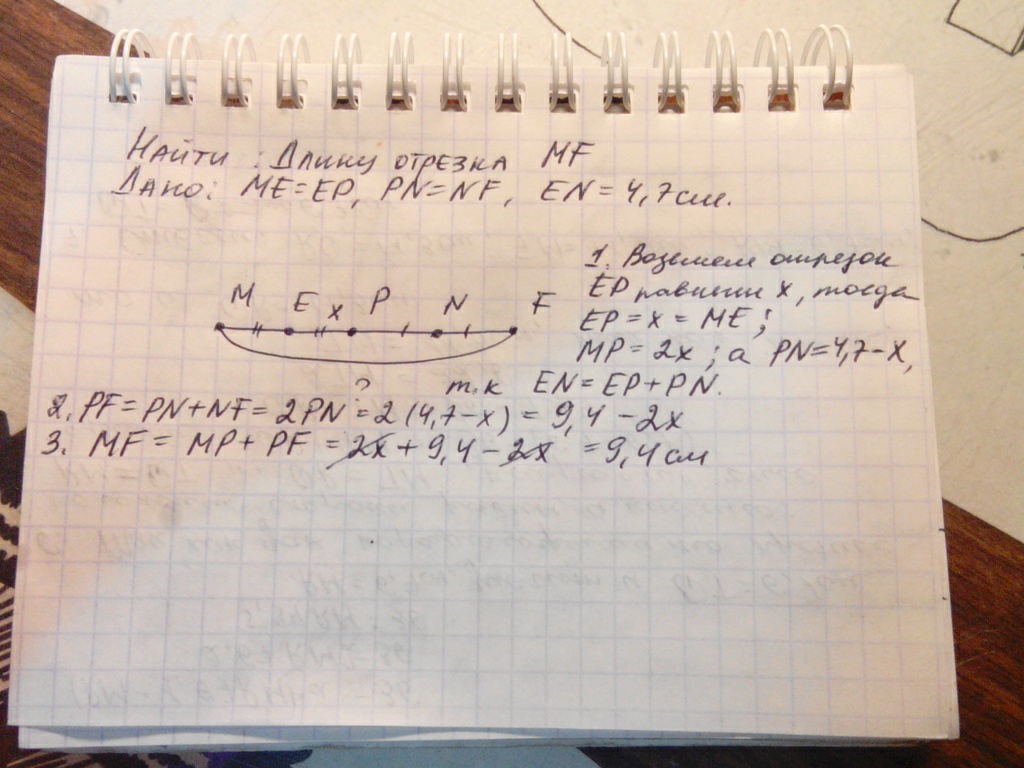 Найти : Длину отрезка MF
Дано: ME=EP, PN=NF, EN=4,7см.
1. Возьмем отрезок
EP равным x, тогда
EP=x=ME;
MP=2x; а PN=4,7-x,
т.к EN=EP+PN.
M E x P N F
?
2. PF=PN+NF=2PN=2(4,7-x)=9,4-2x
3. MF=MP+PF=2x+9,4-2x=9,4см